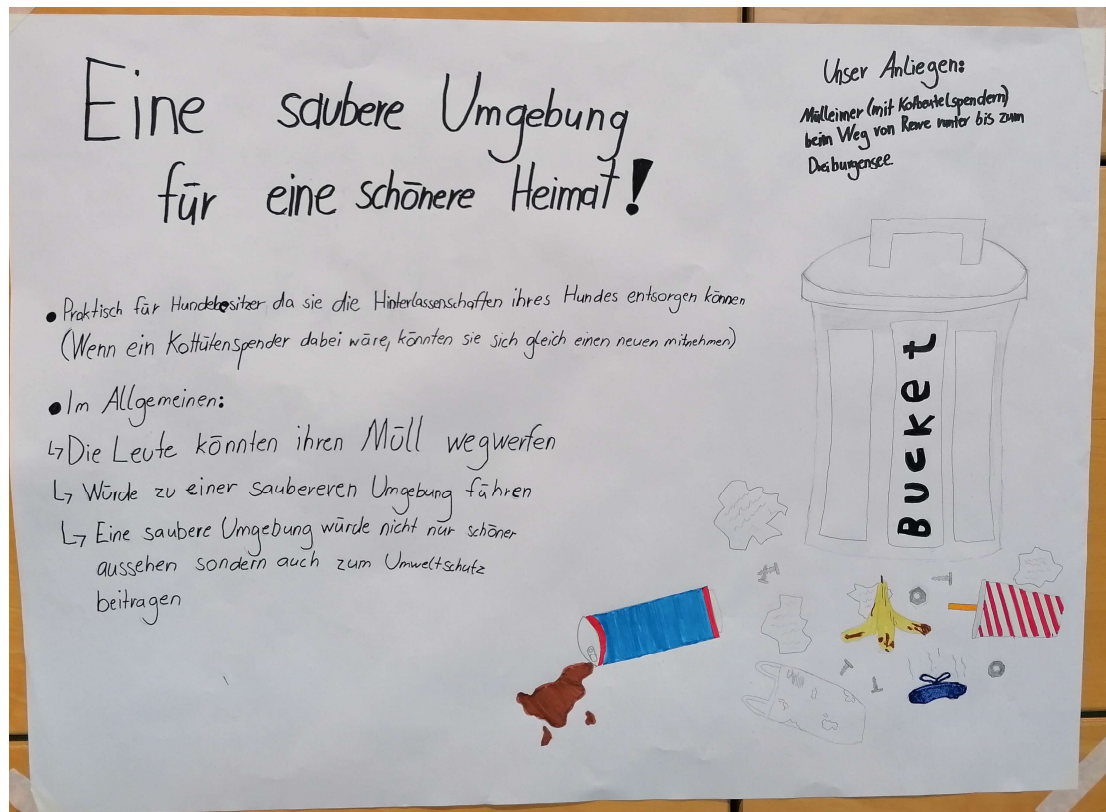 Eine saubere Umgebung
für eine schönere Heimat!
Unser Anliegen:
Mülleimer (mit Kotbeutelspendern)
beim Weg von Rewe runter bis zum
Dreiburgensee
• Praktisch für Hundebesitzer da sie die Hinterlassenschaften ihres Hundes entsorgen können
(Wenn ein Kottütenspender dabei wäre, könnten sie sich gleich einen neuen mitnehmen)
• Im Allgemeinen:
↳ Die Leute könnten ihren Müll wegwerfen
↳ Würde zu einer saubereren Umgebung führen
↳ Eine saubere Umgebung würde nicht nur schöner
aussehen sondern auch zum Umweltschutz
beitragen
Bucket